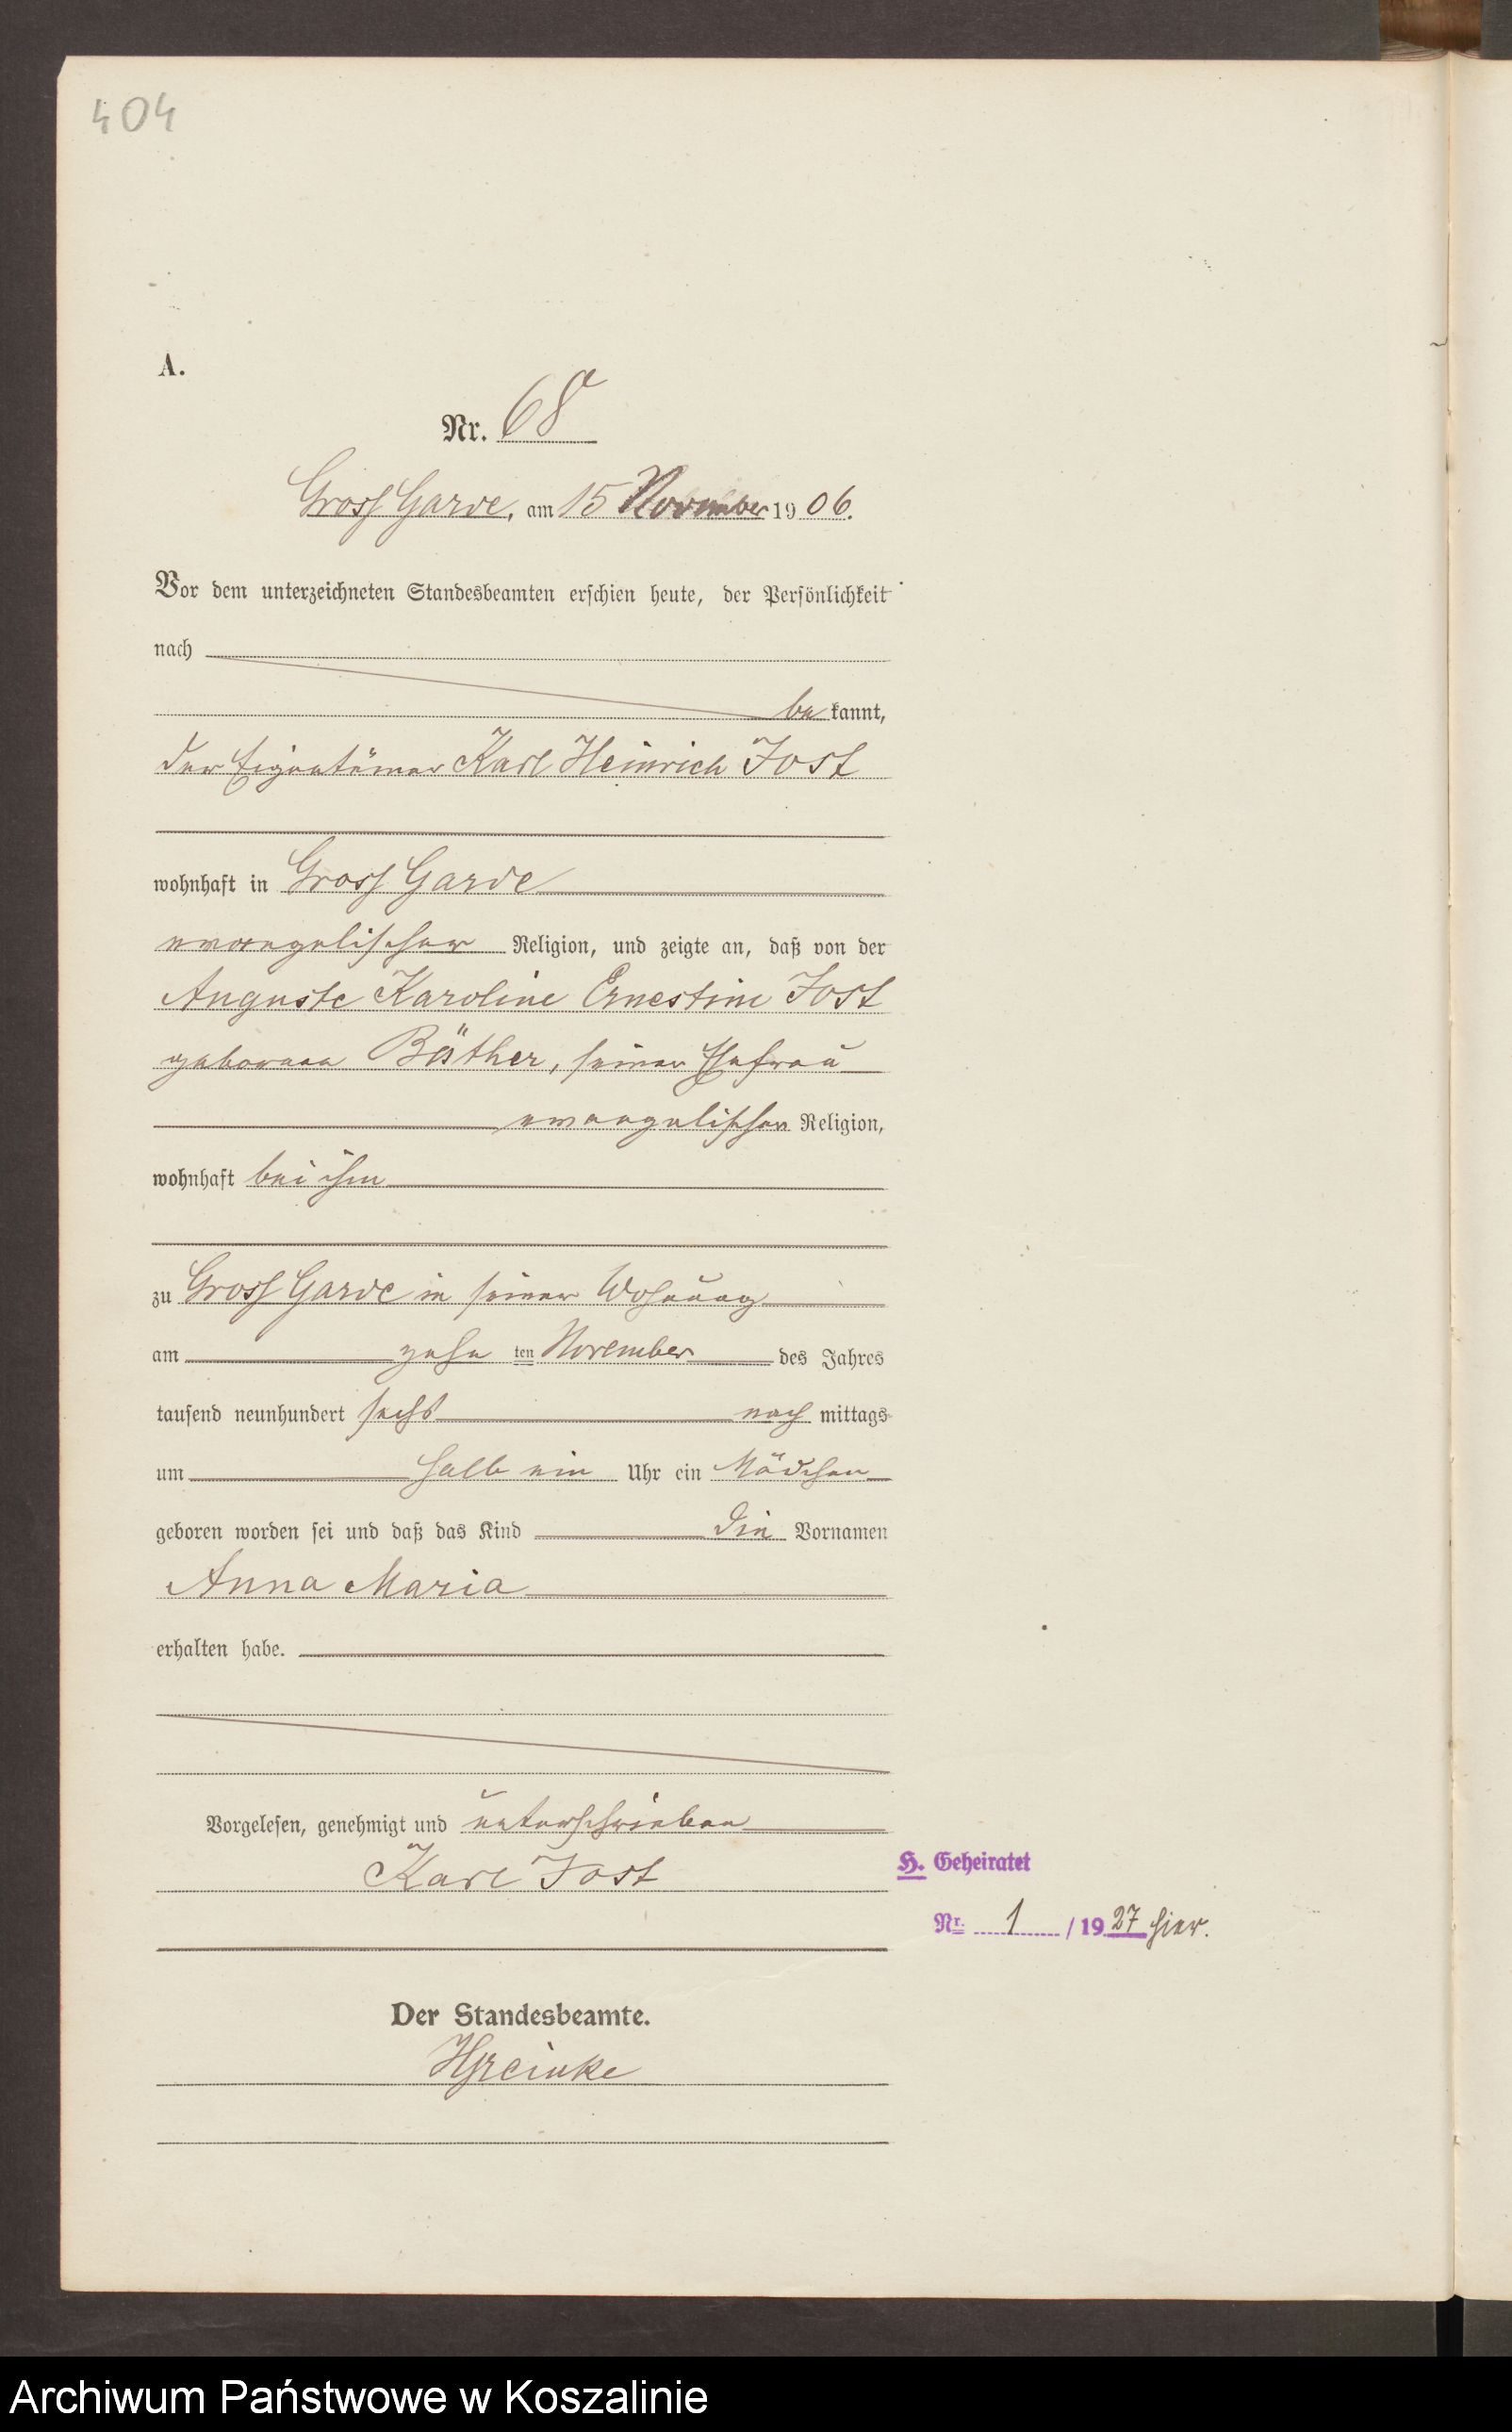 404
A.
Nr. 68
Gross Garde, am 15 November 1906.
Vor dem unterzeichneten Standesbeamten erschien heute, der Persönlichkeit
nach
bekannt,
der Eigentümer Karl Heinrich Jost
wohnhaft in Gross Garde
evangelischer Religion, und zeigte an, daß von der
Auguste Karoline Ernestine Jost
geborenen Bäther, seiner Ehefrau
evangelischen Religion,
wohnhaft bei ihm
zu Gross Garde in seiner Wohnung
am zehnten November des Jahres
tausend neunhundert sechs nachmittags
um halb ein Uhr ein Mädchen
geboren worden sei und daß das Kind die Vornamen
Anna Maria
erhalten habe.
Vorgelesen, genehmigt und unterschrieben
Karl Jost
H. Geheiratet
Nr. 1 / 1927 hier.
Der Standesbeamte.
Archiwum Państwowe w Koszalinie